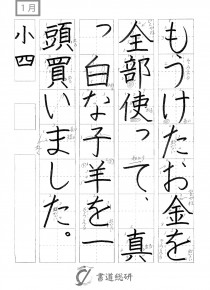 1月
もうけたお金を
全部使って、真
っ白な子羊を一
頭買いました。
小四
書道総研